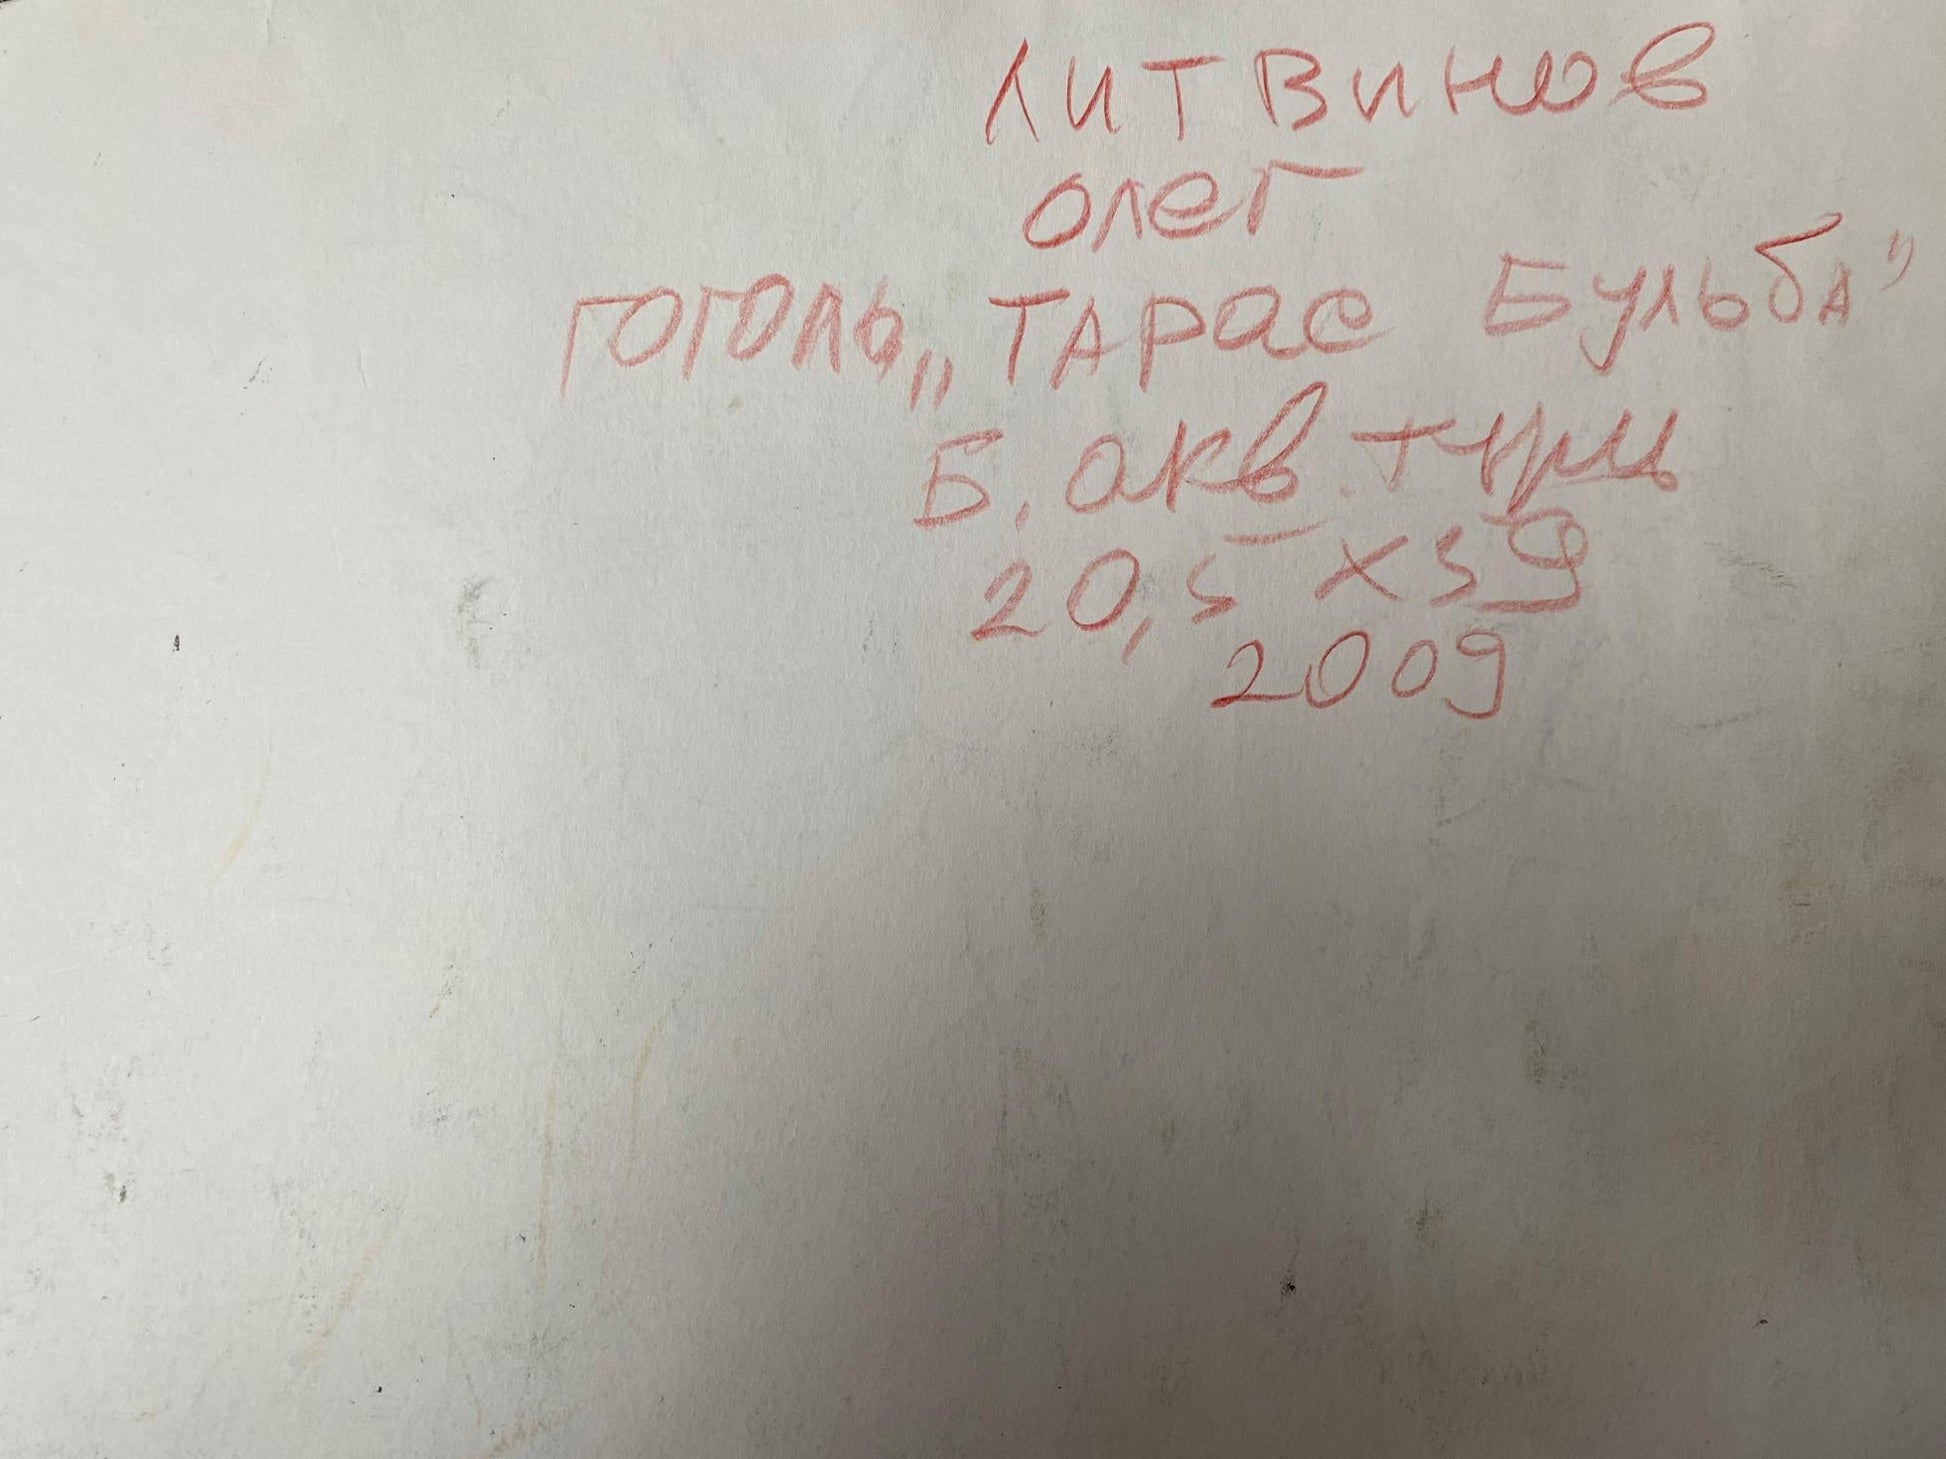 ЛИТВИНОВ
ОЛЕГ
ГОГОЛЬ „ТАРАС БУЛЬБА"
Б. акв. тушь
20,5 х 59
2009